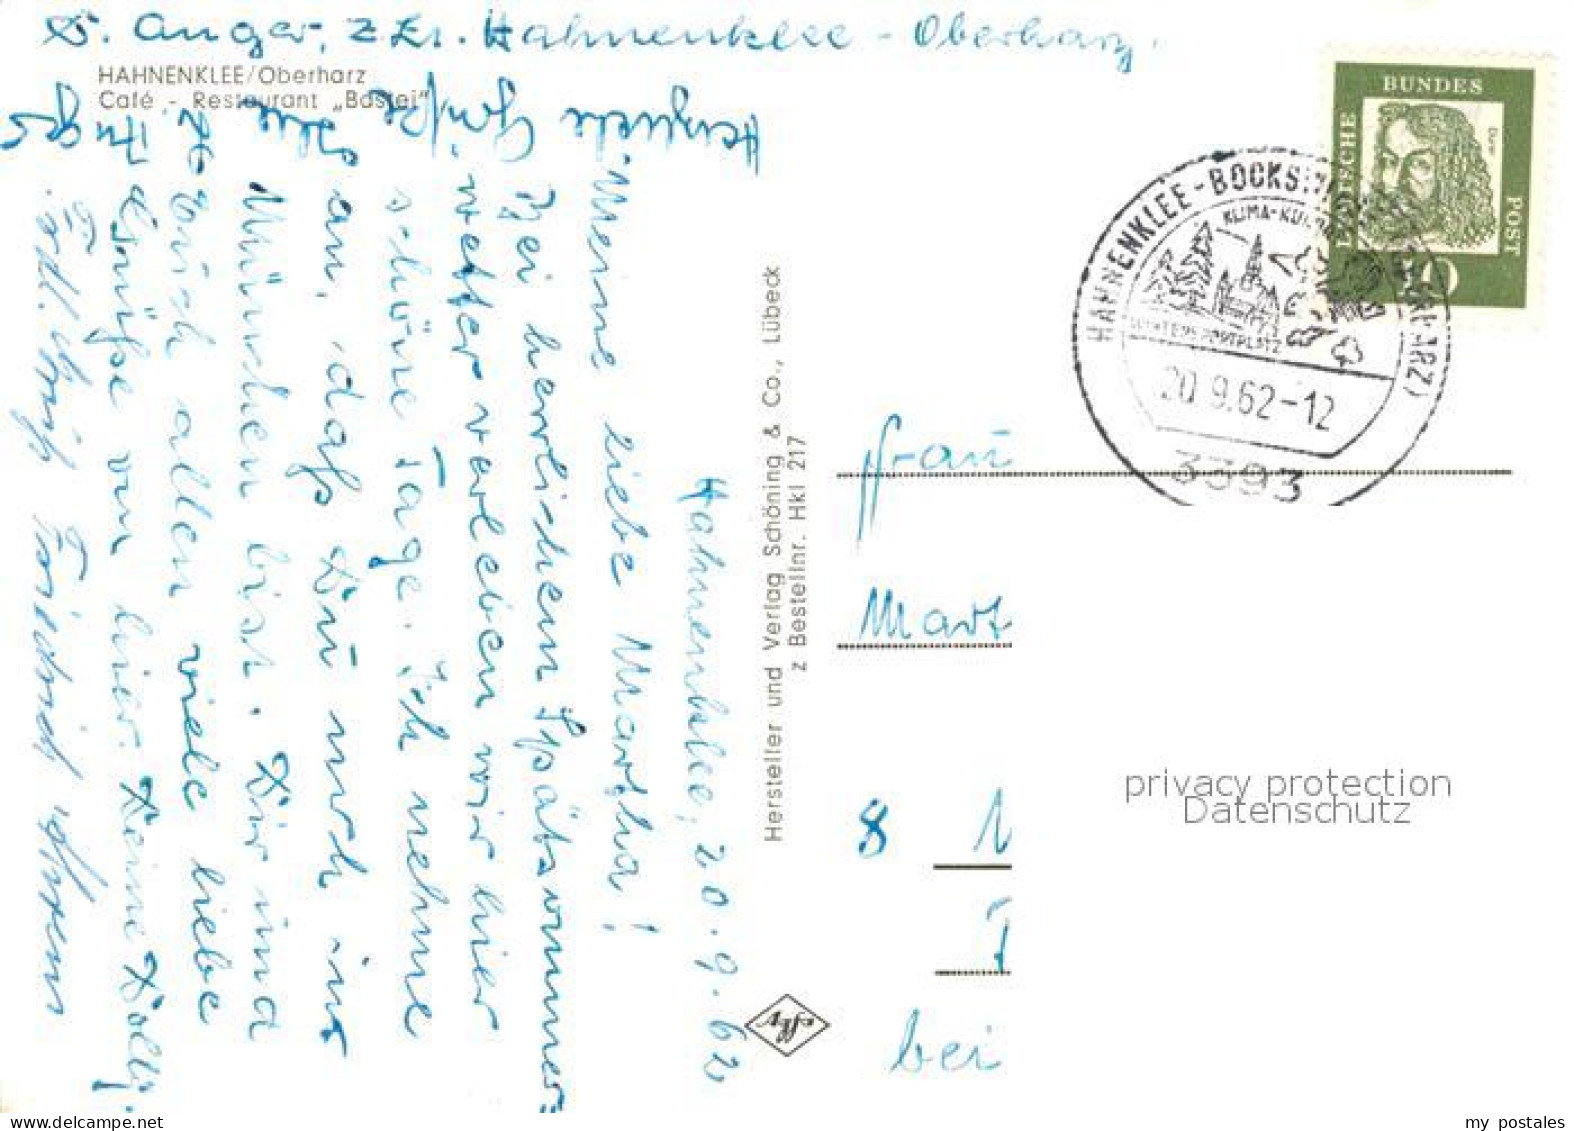 D. Anger, z.Zt. Hahnenklee - Oberharz.
HAHNENKLEE/Oberharz
Café - Restaurant „Bastei"
Hahnenklee, 20.9.62
Meine liebe Martha!
Bei herrlichem Spätsommer=
wetter verleben wir hier
schöne Tage. Ich nehme
an, daß Du noch in
München bist. Dir und
Euch allen viele liebe
Grüße von hier. Deine Dolly.
Herzliche Grüße
Friedrich
Hersteller und Verlag Schöning & Co., Lübeck
z Bestellnr. Hkl 217
DEUTSCHE BUNDES POST
Dürer
10
HAHNENKLEE-BOCKSWIESE (OBERHARZ)
WINTERSPORTPLATZ
20.9.62-12
3393
Frau
Mart
8 M
bei
privacy protection
Datenschutz
my postales